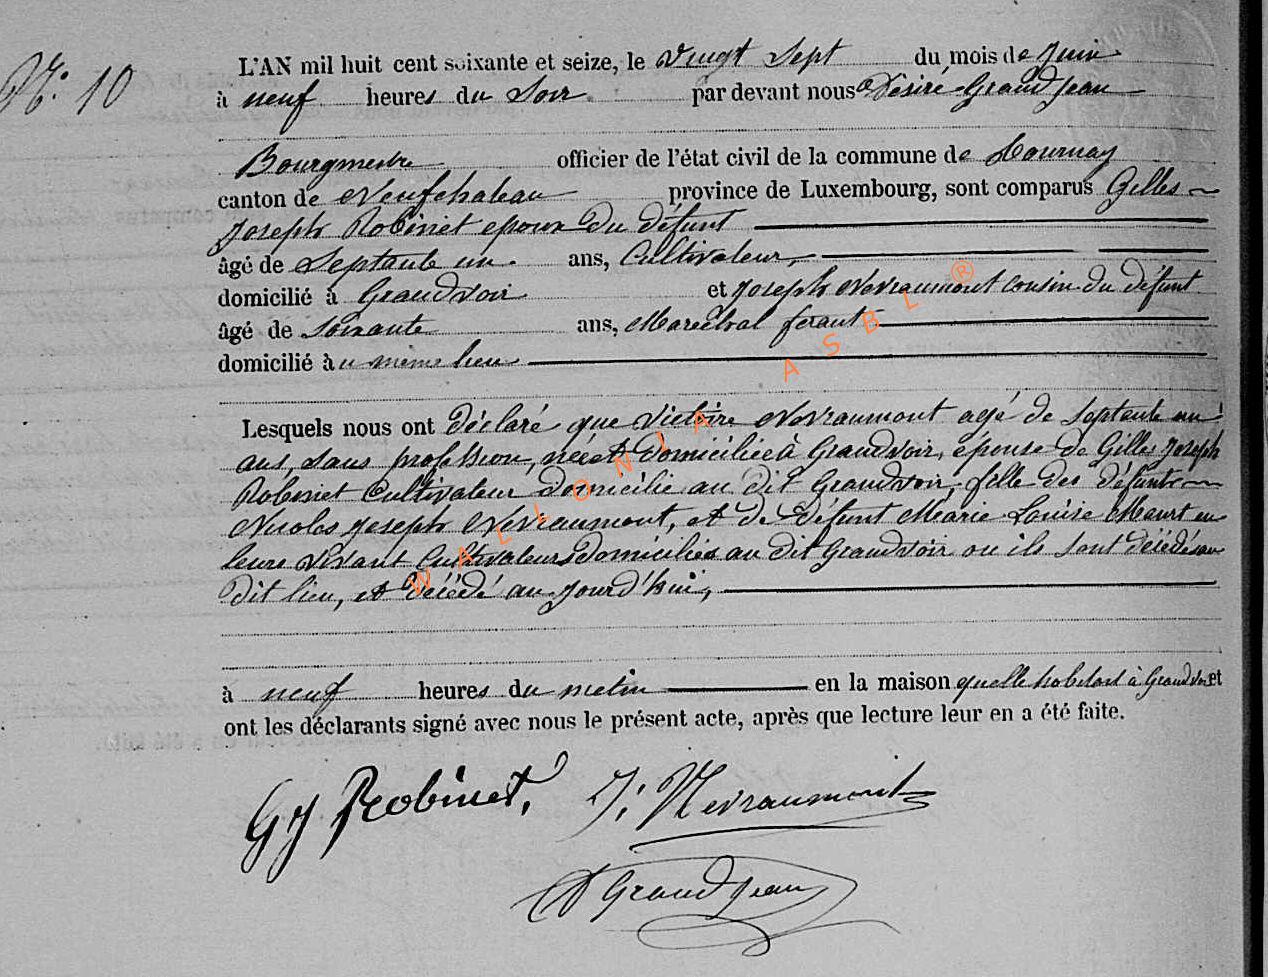 N.° 10
L'AN mil huit cent soixante et seize, le vingt sept du mois de Juin
à neuf heures du Soir par devant nous Désiré Grandjean
Bourgmestre officier de l'état civil de la commune de Tournay
canton de Neufchateau province de Luxembourg, sont comparus Gilles
Joseph Robinet epoux du défunt
âgé de Septante un ans, Cultivateur,
domicilié à Grandvoir et Joseph Nevraumont cousin du défunt
âgé de Soixante ans, Marechal ferant
domicilié à u même lieu
Lesquels nous ont déclaré que Victoire Nevraumont agé de Septante un
ans, sans profession, née et domiciliée à Grandvoir, épouse de Gilles Joseph
Robinet Cultivateur domicilié au dit Grandvoir, fille des défunts
Nicolas Joseph Nevraumont, et de défunt Marie Louise Meurt en
leurs vivant Cultivateurs domiciliés au dit Grandvoir ou ils sont décédés au
dit lieu, et décédé aujourd'hui,
à neuf heures du matin en la maison quelle habitait à Grandvoir et
ont les déclarants signé avec nous le présent acte, après que lecture leur en a été faite.
G J Robinet, J: Nevraumont
D Grandjean
WALLONIA ASBL ®